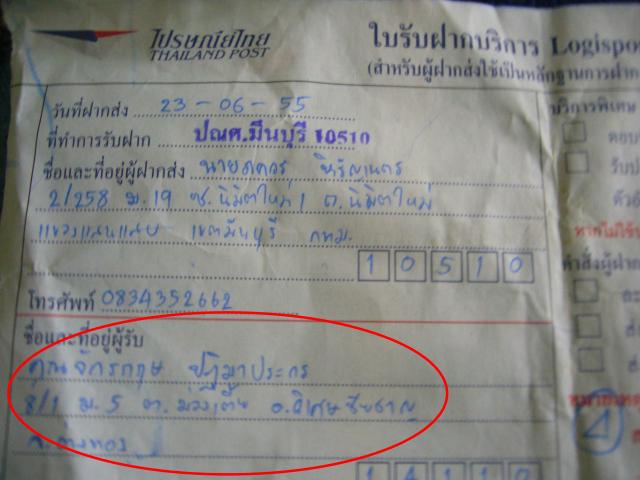 ไปรษณีย์ไทย
THAILAND POST
ใบรับฝากบริการ Logispo
(สำหรับผู้ฝากส่งใช้เป็นหลักฐานการฝาก
วันที่ฝากส่ง 23-06-55
ที่ทำการรับฝาก ปณศ.มีนบุรี 10510
ชื่อและที่อยู่ผู้ฝากส่ง นาย
2/258 ม.19 ซ.นิมิตใหม่ 1 ถ.นิมิตใหม่
แขวงแสนแสบ เขตมีนบุรี กทม.
10510
โทรศัพท์ 0834352662
ชื่อและที่อยู่ผู้รับ
คุณจักรกฤษ ปฏิมาประกร
8/1 ม.5 ต.ม่วงเตี้ย อ.วิเศษชัยชาญ
จ.อ่างทอง
14110
บริการพิเศษ
ตอบ
รับป
ตัวอั
หากไม่ใช้บ
คำสั่งผู้ฝาก
ละ
ส่
ส